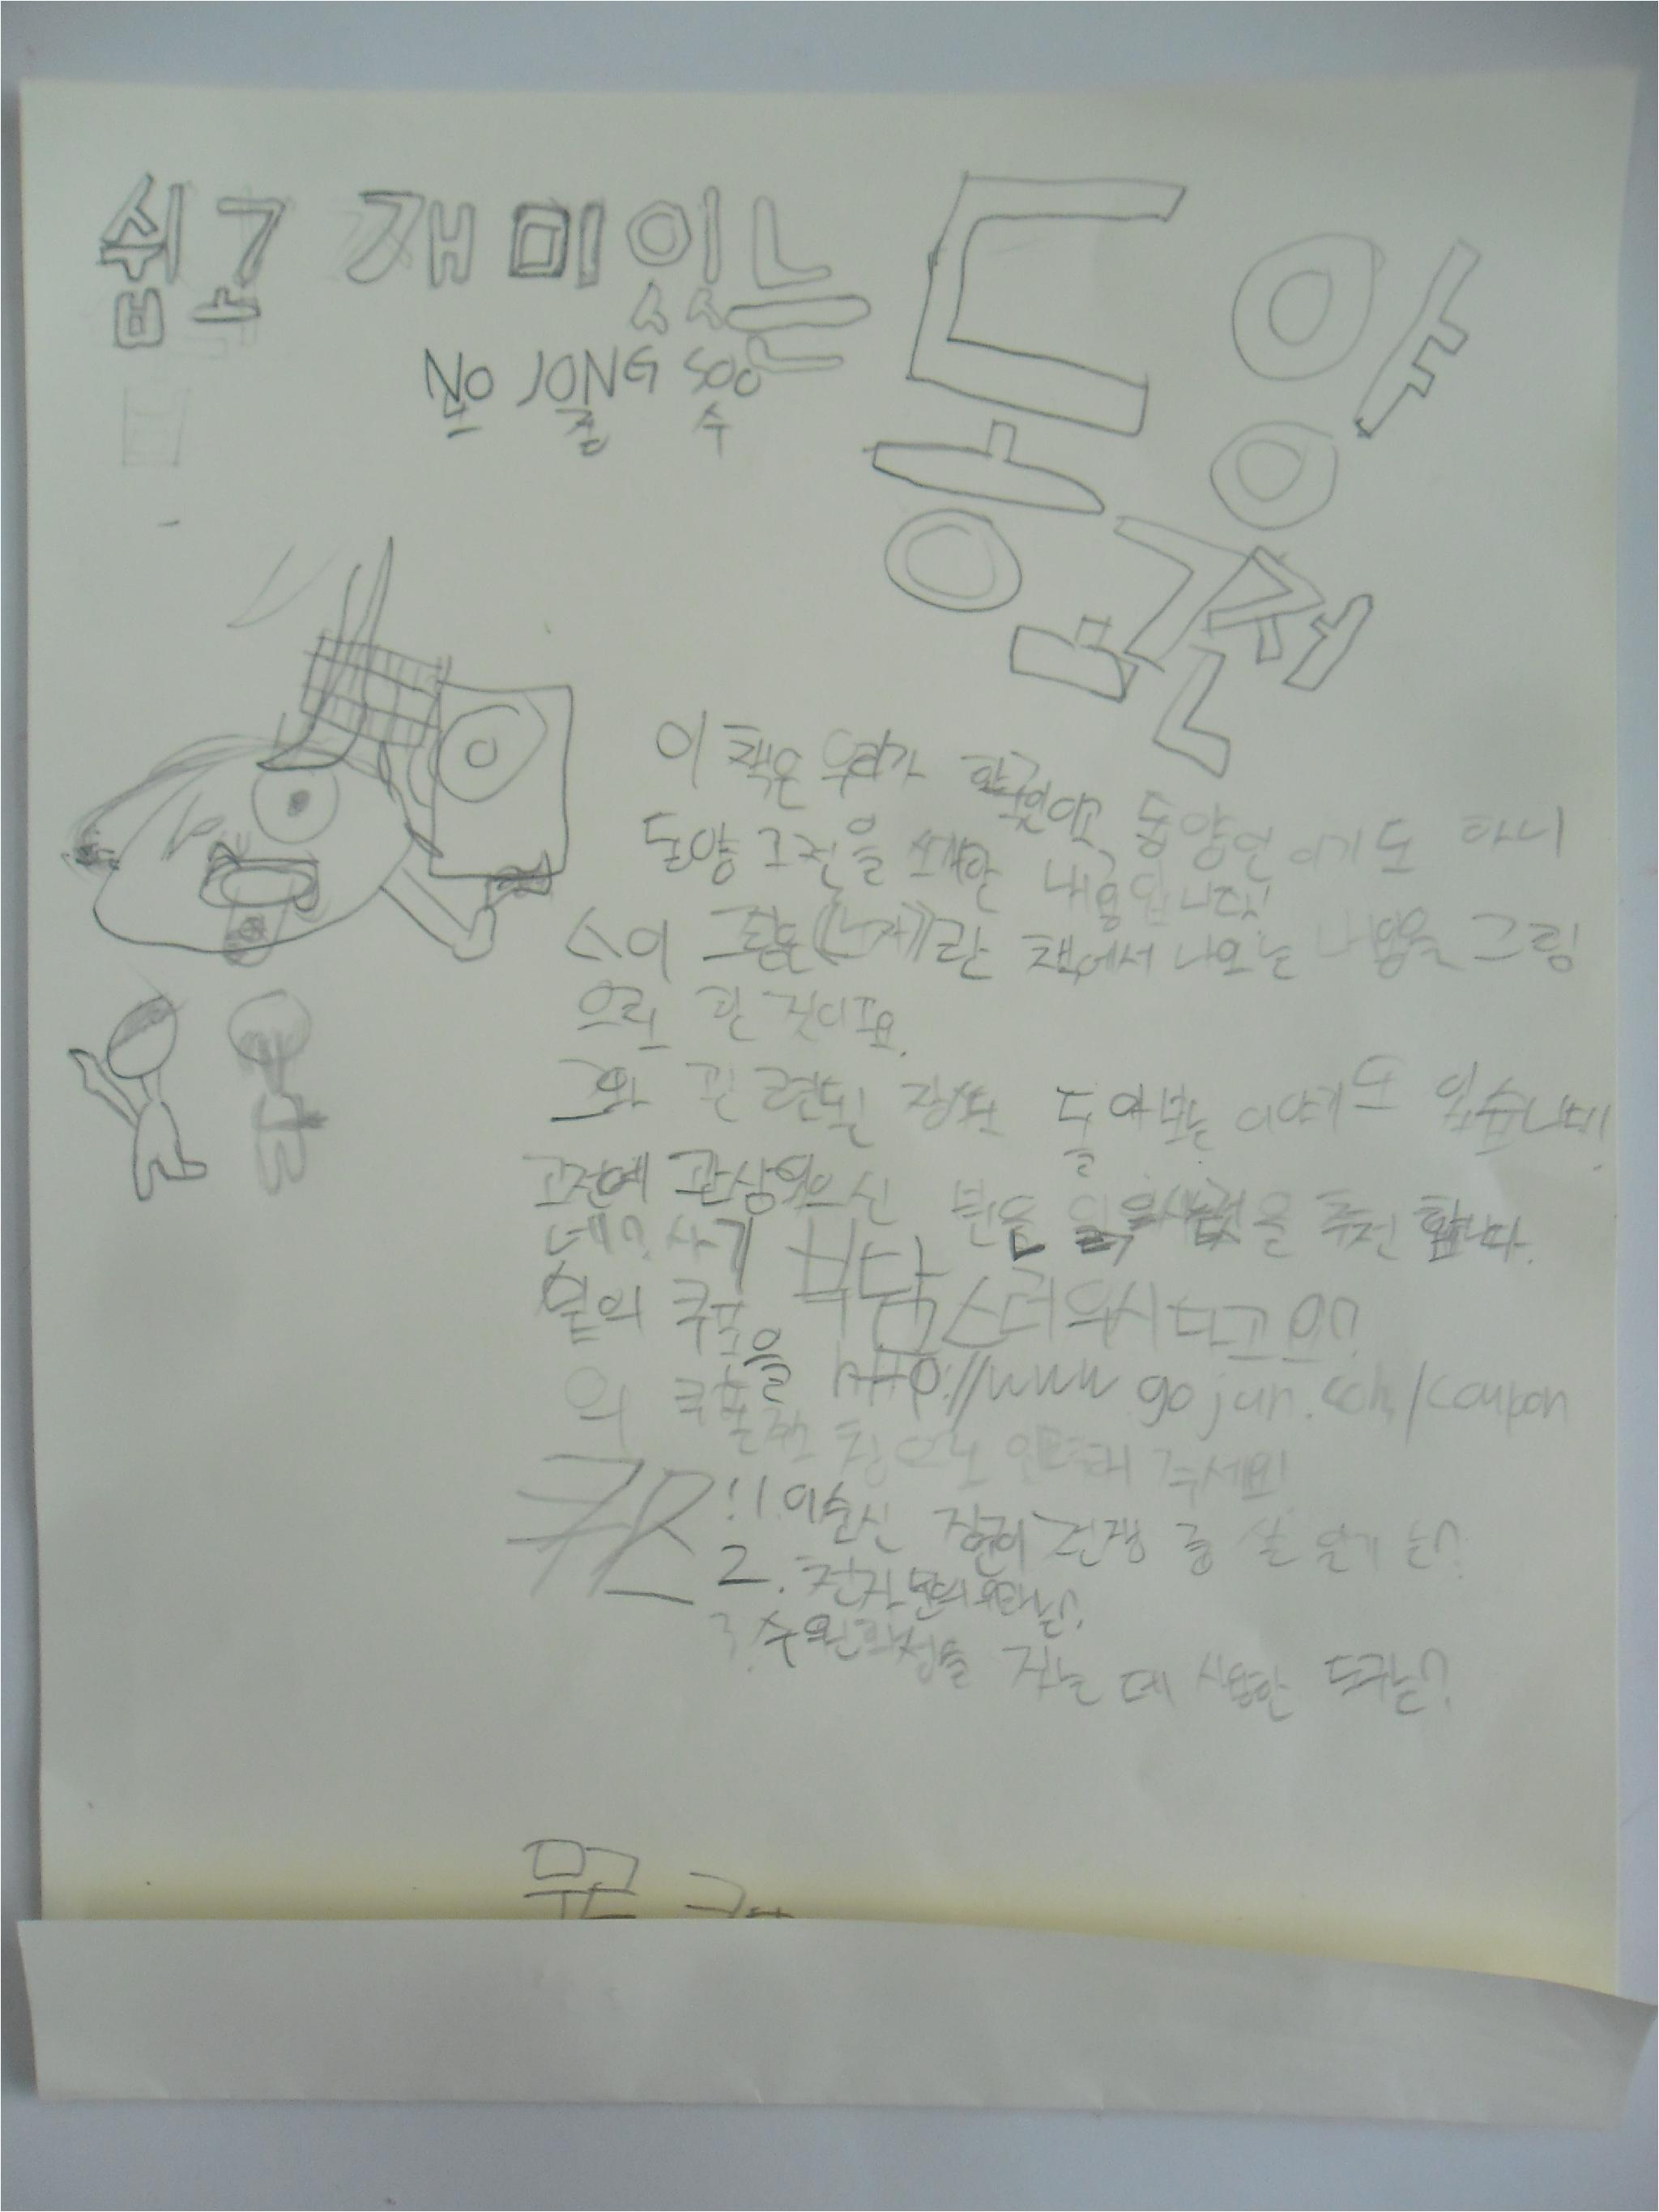 쉽고 재미있는
동양
고전
ON JONG SOO
온 종 수
이 책은 우리가 한국인이고 동양인 이기도 하니
동양 고전을 소개한 내용입니다!
<이 그림은《노자》란 책에서 나오는 내용을 그림
으로 한 것이고요.
그와 관련된 장소 돌아보는 이야기도 있습니다.
고전에 관심있으신 분들 읽으시는 것을 추천 합니다.
네? 사기 부담스러우시다고요?
밑의 쿠폰을 http://www.gojun.com/coupon
의 쿠폰 창으로 입력해 주세요!
퀴즈!1. 이순신 장군이 전쟁 중 쓴 일기는?
2. 천자문의 는?
3. 수원화성을 짓는 데 사용한 도구는?